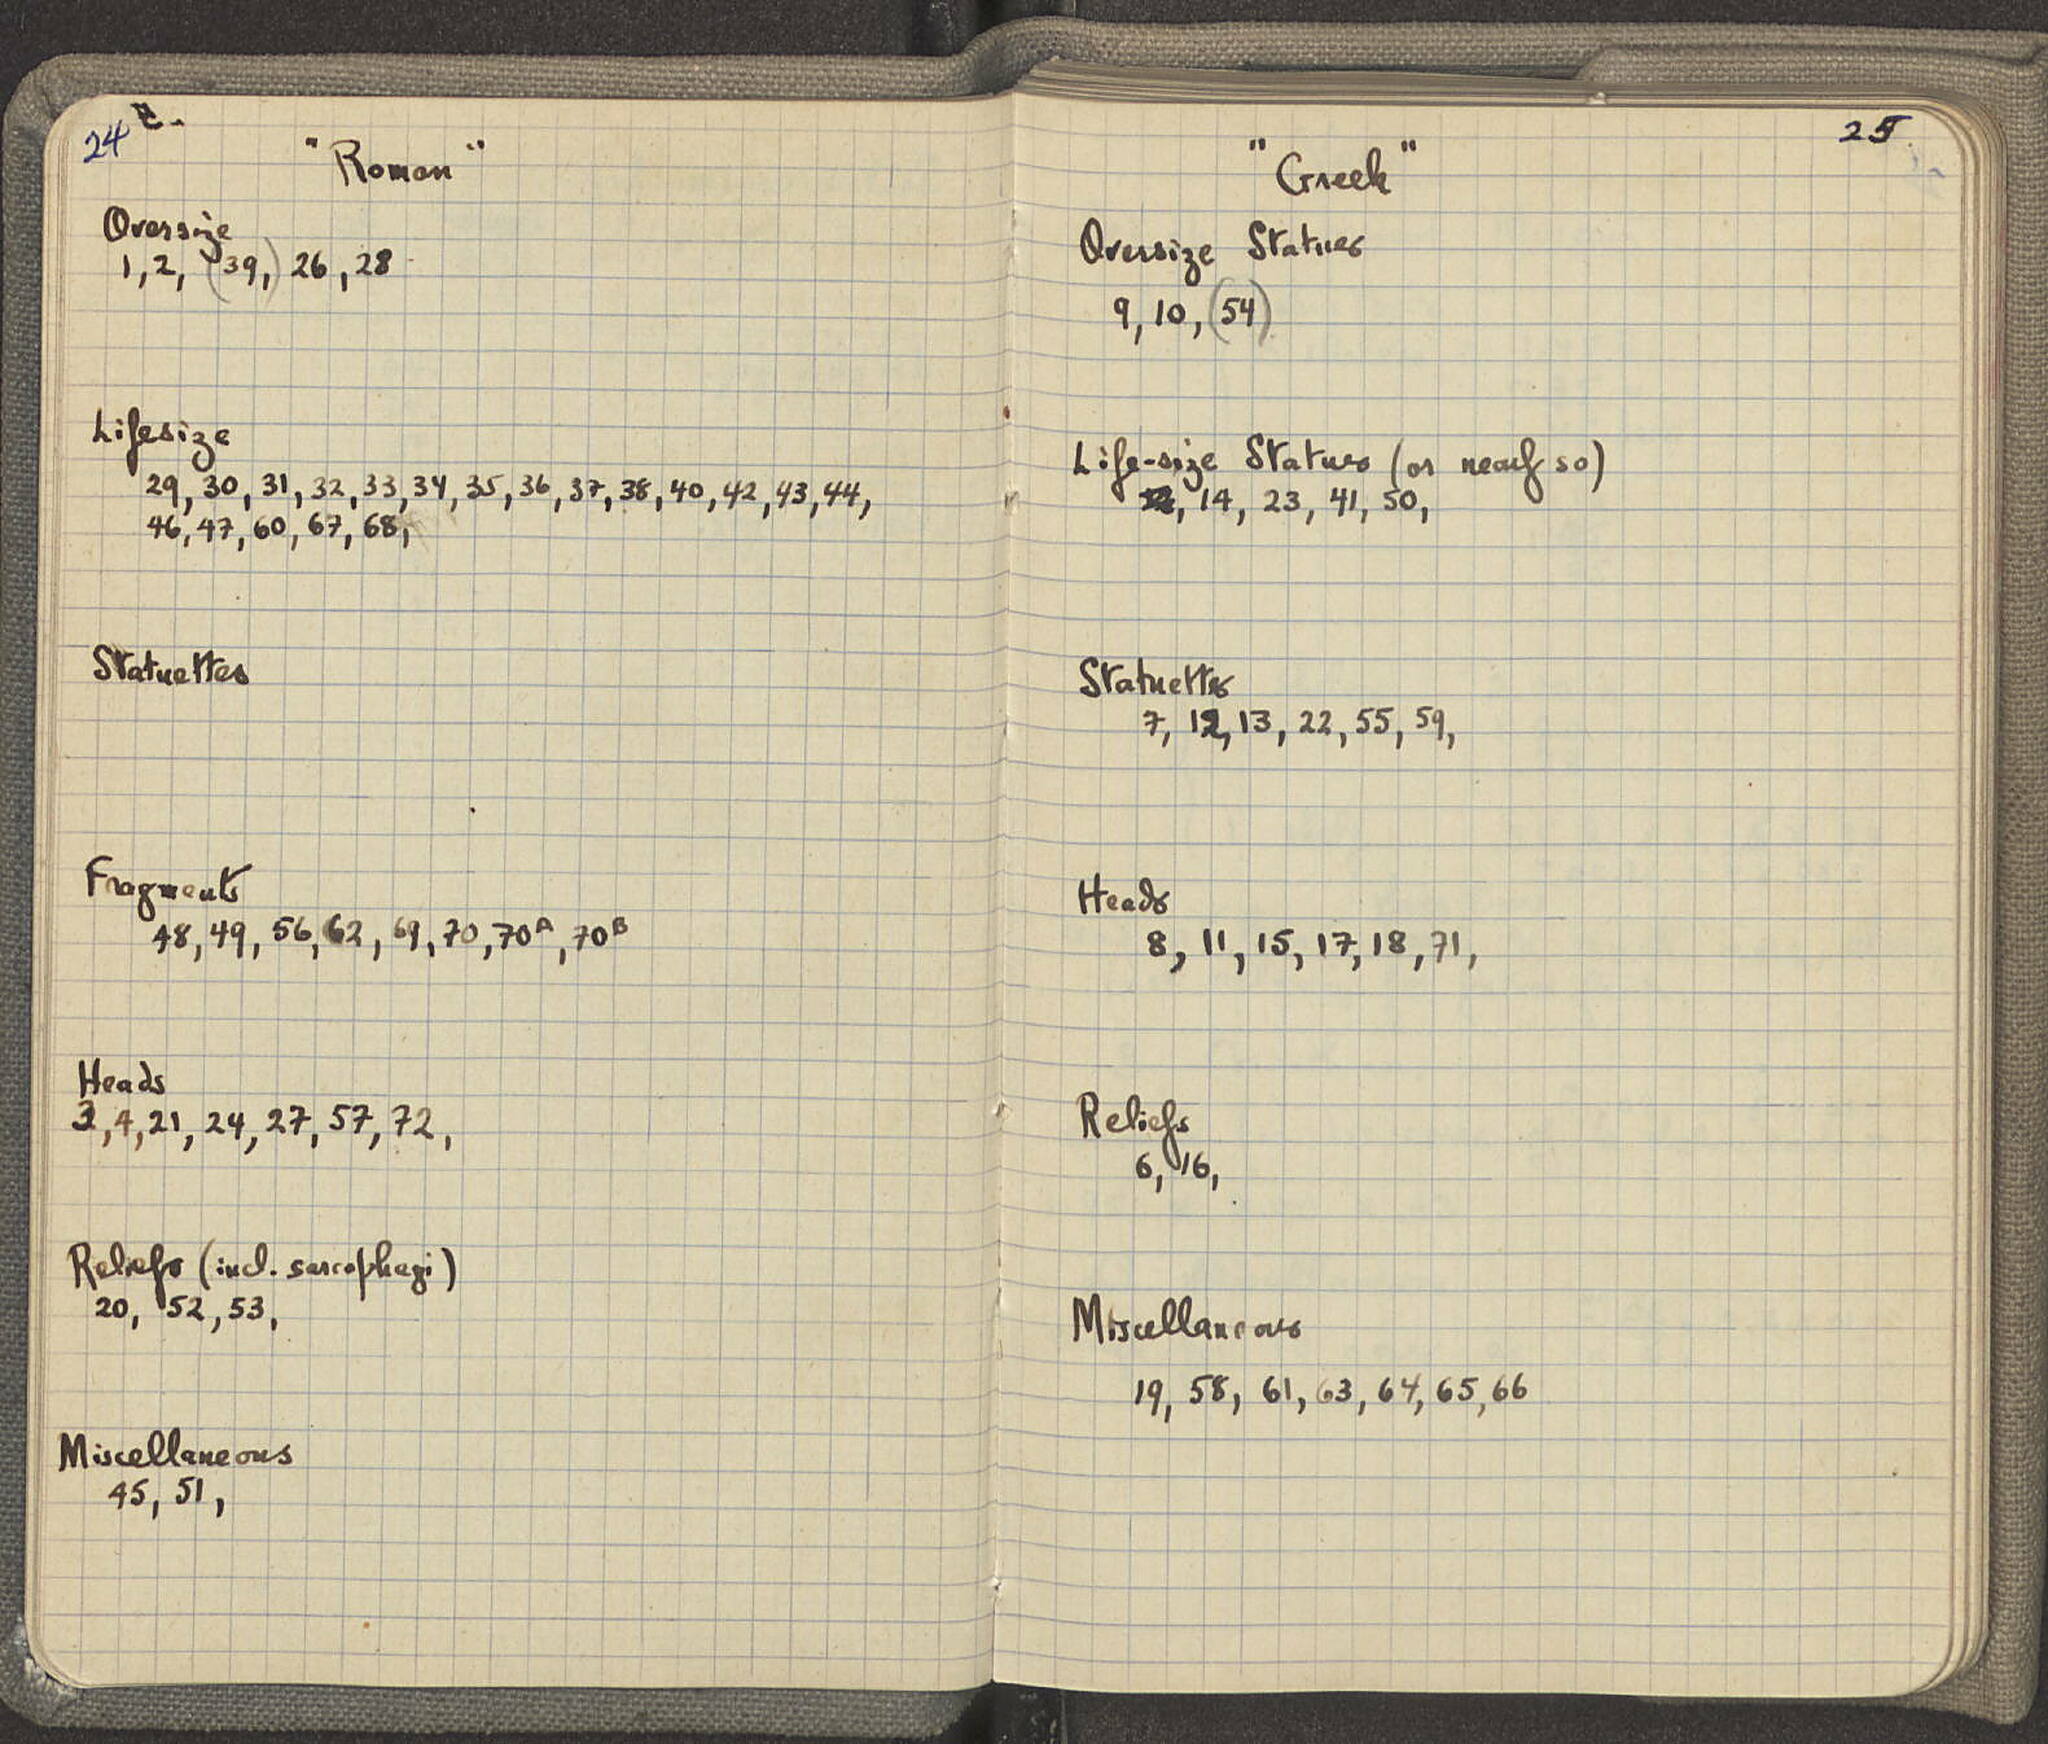 24
"Roman"
Oversize
1, 2, (39,) 26, 28
Lifesize
29, 30, 31, 32, 33, 34, 35, 36, 37, 38, 40, 42, 43, 44,
46, 47, 60, 67, 68,
Statuettes
Fragments
48, 49, 56, 62, 69, 70, 70A, 70B
Heads
3, 4, 21, 24, 27, 57, 72,
Reliefs (incl. sarcophagi)
20, 52, 53,
Miscellaneous
45, 51,
25
"Greek"
Oversize Statues
9, 10, (54)
Life-size Statues (or nearly so)
14, 23, 41, 50,
Statuettes
7, 12, 13, 22, 55, 59,
Heads
8, 11, 15, 17, 18, 71,
Reliefs
6, 16,
Miscellaneous
19, 58, 61, 63, 64, 65, 66